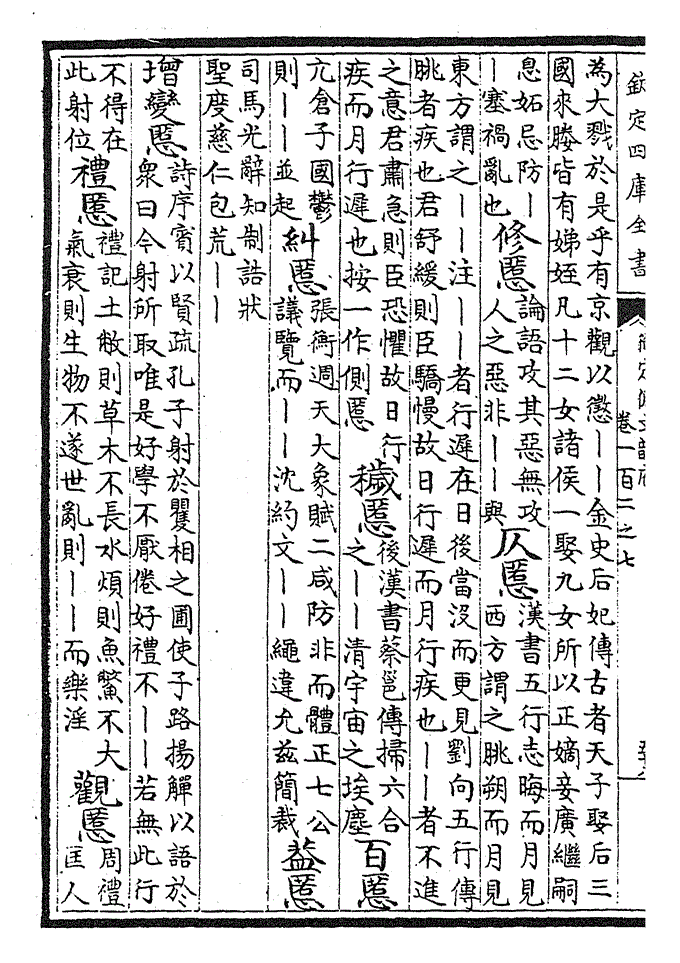 欽定四庫全書
卷一百二之七
為大戮於是乎有京觀以懲丨丨金史后妃傳古者天子娶后三
國來媵皆有娣姪凡十二女諸侯一娶九女所以正嫡妾廣繼嗣
息妬忌防丨
丨塞禍亂也
修慝
論語攻其惡無攻
人之惡非丨丨與
仄慝
漢書五行志晦而月見
西方謂之朓朔而月見
東方謂之丨丨注丨丨者行遲在日後當沒而更見劉向五行傳
朓者疾也君舒緩則臣驕慢故日行遲而月行疾也丨丨者不進
之意君肅急則臣恐懼故日行
疾而月行遲也按一作側慝
穢慝
後漢書蔡邕傳掃六合
之丨丨清宇宙之埃塵
百慝
亢倉子國鬱
則丨丨並起
糾慝
張衡週天大象賦二咸防非而體正七公
議覽而丨丨沈約文丨丨繩違允茲簡裁
益慝
司馬光辭知制誥狀
聖度慈仁包荒丨丨
增變慝
詩序賓以賢疏孔子射於矍相之圃使子路揚觶以語於
衆曰今射所取唯是好學不厭倦好禮不丨丨若無此行
不得在
此射位
禮慝
禮記土敝則草木不長水煩則魚鱉不大
氣衰則生物不遂世亂則丨丨而樂淫
觀慝
周禮
匡人